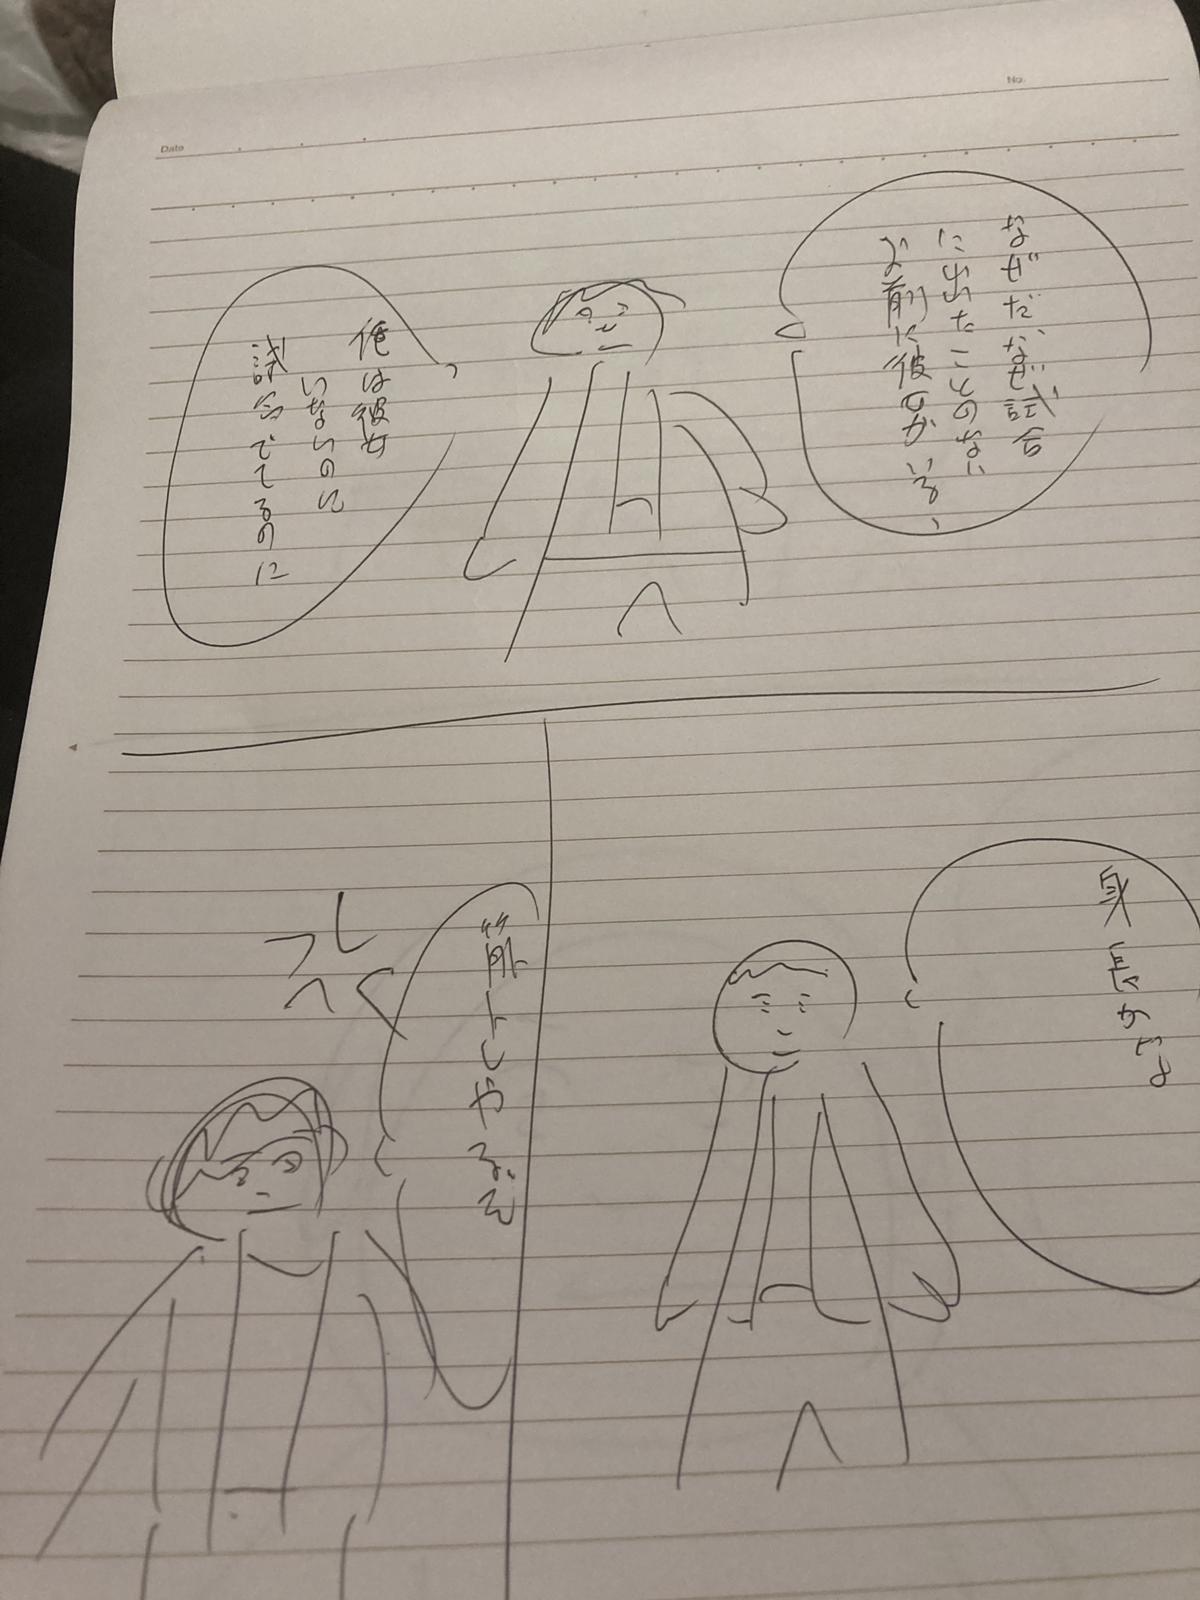 Date
No.
なぜだなぜ試合
に出たことのない
お前に彼女がいる、
俺は彼女
いないのに
試合でてるのに
身長かな
筋トレやるぞ